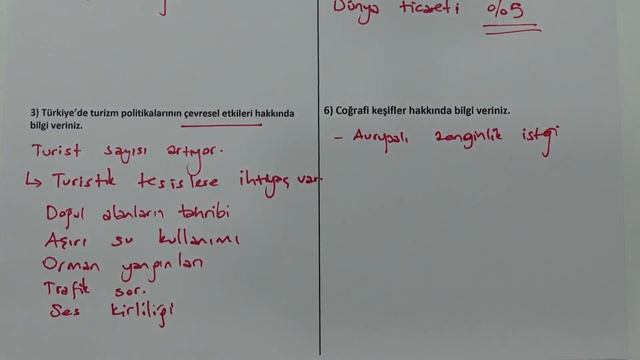 Dünya ticareti %5
3) Türkiye'de turizm politikalarının çevresel etkileri hakkında
bilgi veriniz.
Turist sayısı artıyor.
↳ Turistik tesislere ihtiyaç var.
Doğal alanların tahribi
Aşırı su kullanımı
Orman yangınları
Trafik sor.
Ses kirliliği
6) Coğrafi keşifler hakkında bilgi veriniz.
- Avrupalı zenginlik isteği